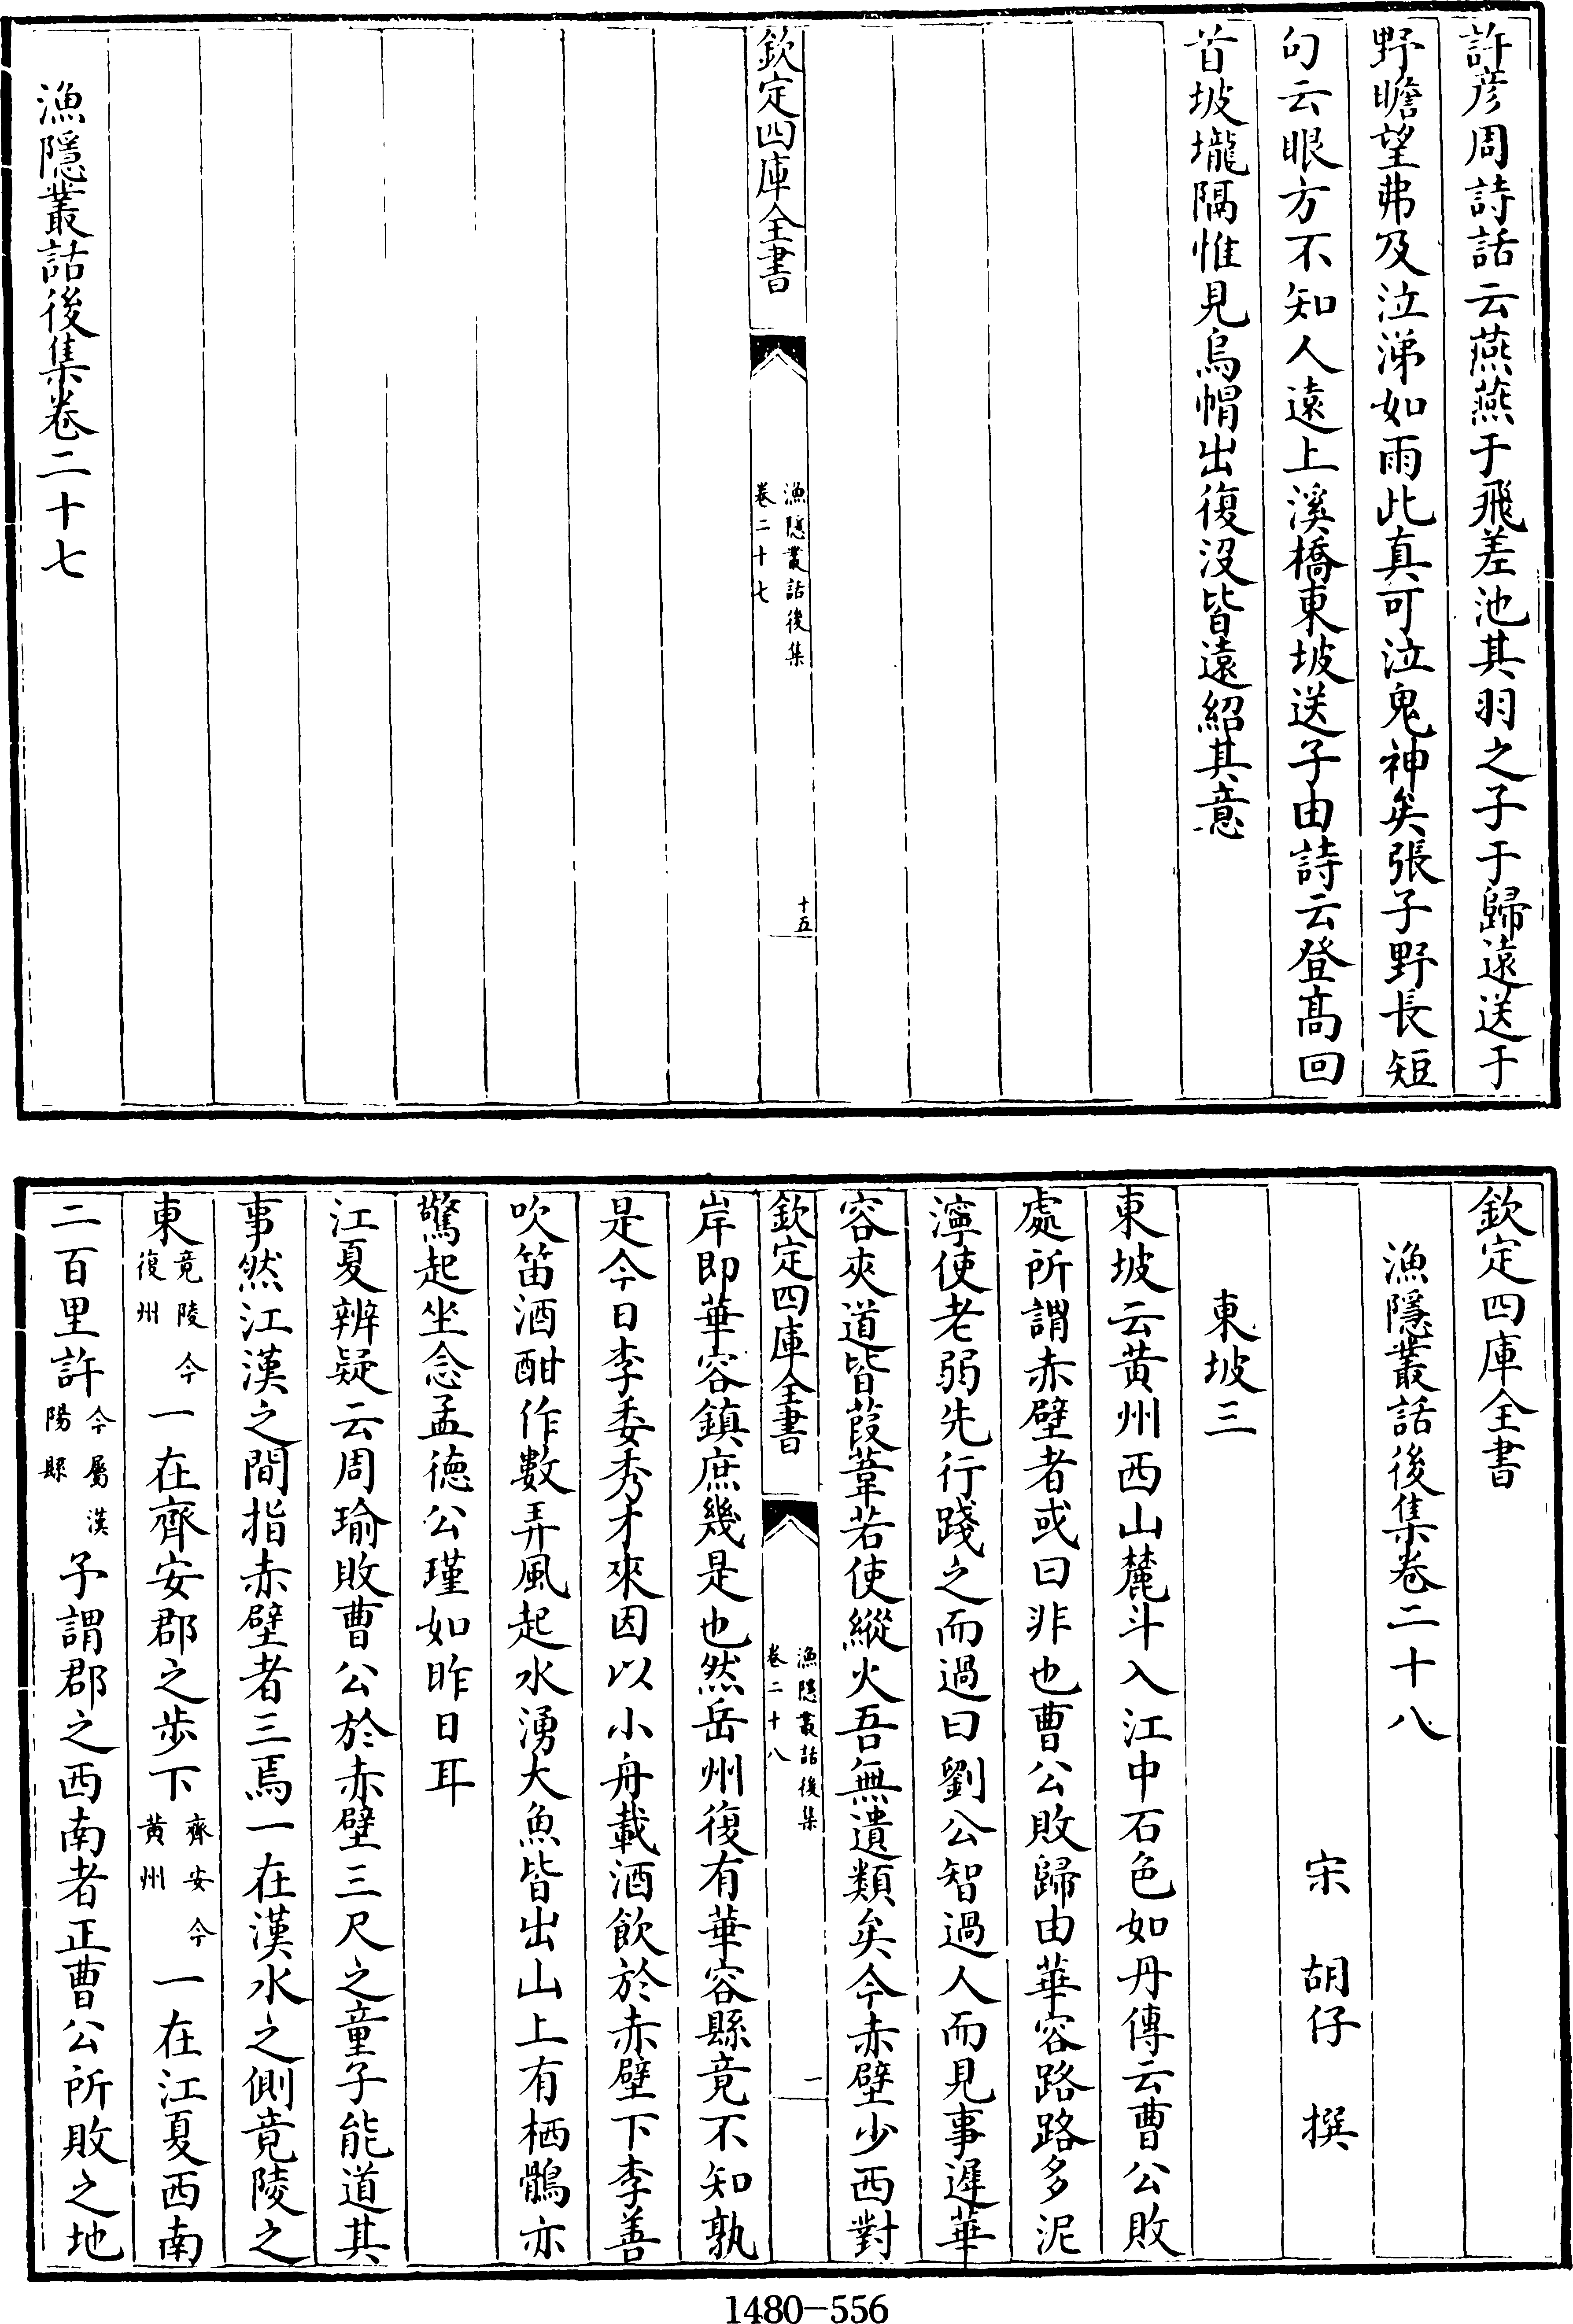 許彦周詩話云燕燕于飛差池其羽之子于歸遠送于
野瞻望弗及泣涕如雨此真可泣鬼神矣張子野長短
句云眼方不知人遠上溪橋東坡送子由詩云登髙回
首坡壠隔惟見烏帽出復没皆逺紹其意
欽定四庫全書
漁隱叢話後集
卷二十七
十五
漁隱叢詁後集卷二十七
欽定四庫全書
漁隱叢話後集卷二十八
宋 胡仔 撰
東坡三
東坡云黄州西山麓斗入江中石色如丹傳云曹公敗
處所謂赤壁者或曰非也曹公敗歸由華容路路多泥
濘使老弱先行踐之而過曰劉公智過人而見事遲華
容夾道皆葭葦若使縱火吾無遺類矣今赤壁少西對
欽定四庫全書
漁隱叢話後集
卷二十八
一
岸即華容鎮庶幾是也然岳州復有華容縣竟不知孰
是今日李委秀才來因以小舟載酒飲於赤壁下李善
吹笛酒酣作數弄風起水湧大魚皆出山上有栖鶻亦
驚起坐念孟徳公瑾如昨日耳
江夏辨疑云周瑜敗曹公於赤壁三尺之童子能道其
事然江漢之間指赤壁者三焉一在漢水之側竟陵之
東竟陵今復州一在齊安郡之歩下齊安今黄州一在江夏西南
二百里許今屬漢陽縣予謂郡之西南者正曹公所敗之地
1480-556